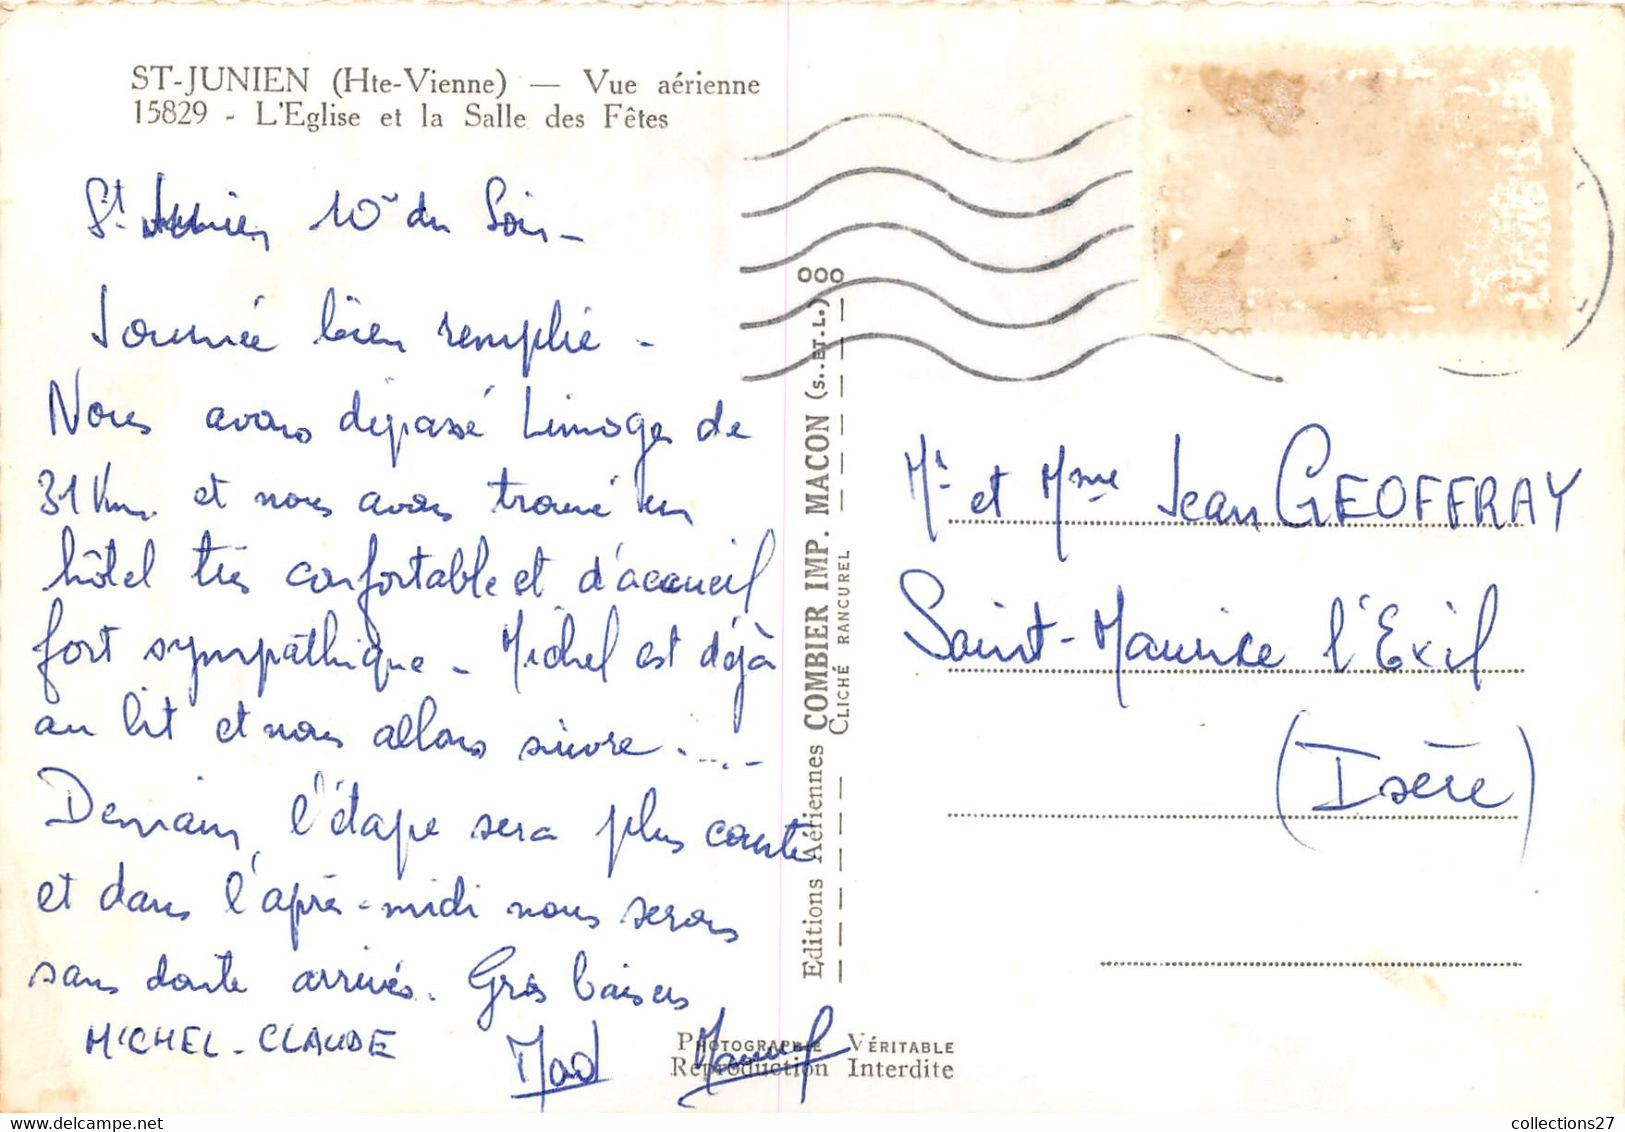 ST-JUNIEN (Hte-Vienne) — Vue aérienne
15829 - L'Eglise et la Salle des Fêtes
St Junien 10h du Soir -
Journée bien remplie -
Nous avons dépassé Limoges de
31 Km. et nous avons trouvé un
hôtel très confortable et d'accueil
fort sympathique - Michel est déjà
au lit et nous allons suivre .....
Demain, l'étape sera plus courte
et dans l'après-midi nous serons
sans doute arrivés. Gros baisers
MICHEL - CLAUDE
Mad
Editions Aériennes COMBIER IMP. MACON (S.-ET-L.) OOO
CLICHÉ RANCUREL
PHOTOGRAPHIE VÉRITABLE
Reproduction Interdite
Mr et Mme Jean GEOFFRAY
Saint-Maurice l'Exil
(Isère)
collections27